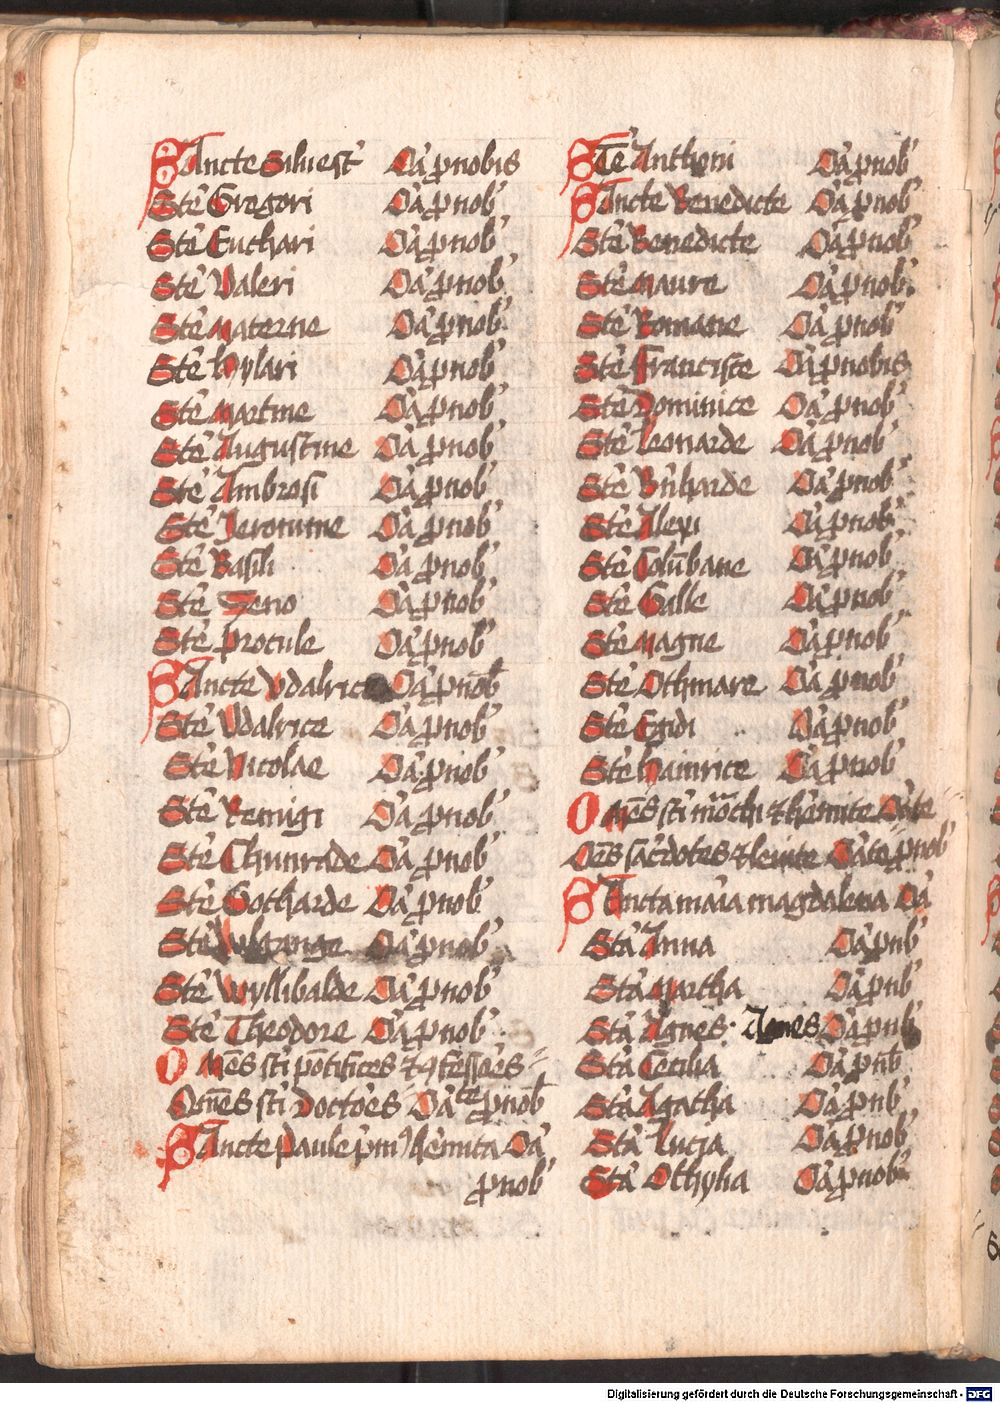 SAncte Siluest' Oa pnobis
Ste Gregori Oa pnob'
Ste Euchari Oa pnob'
Ste Valeri Oa pnob'
Ste Materne Oa pnob'
Ste Hylari Oa pnob'
Ste Martine Oa pnob'
Ste Augustine Oa pnob'
Ste Ambrosi Oa pnob'
Ste Jeronime Oa pnob'
Ste Basili Oa pnob'
Ste Zeno Oa pnob'
Ste Procule Oa pnob'
SAncte Vdalrice Oa pnob'
Ste Vdalrice Oa pnob'
Ste Nicolae Oa pnob'
Ste Remigi Oa pnob'
Ste Chunrade Oa pnob'
Ste Gotharde Oa pnob'
Ste Oa pnob'
Ste Wyllibalde Oa pnob'
Ste Theodore Oa pnob'
OMes sti potifices & 9fessores
Omnes sti Doctoes Oate pnob
SAncte Paule pmi' hemita Oa
pnob'
STe Anthoni Oa pnob'
SAncte Benedicte Oa pnob'
Ste Benedicte Oa pnob'
Ste Maure Oa pnob'
Ste Romane Oa pnob'
Ste Francisce Oa pnobis
Ste Dominice Oa pnob'
Ste Leonarde Oa pnob'
Ste Bnharde Oa pnob'
Ste Alexi Oa pnob'
Ste Columbane Oa pnob'
Ste Galle Oa pnob'
Ste Magne Oa pnob'
Ste Othmare Oa pnob'
Ste Egidi Oa pnob'
Ste Hainrice Oa pnob'
OMes sti moachi & hemite Oate
Oes sacdotes & leuite Oate pnob'
SAncta maia magdalena Oa
Sta Anna Oa pnb'
Sta Martha Oa pnb'
Sta Agnes Agnes Oa pnb'
Sta Cecilia Oa pnb'
Sta Agatha Oa pnb'
Sta Lucia Oa pnob'
Sta Othylia Oa pnob'
Digitalisierung gefördert durch die Deutsche Forschungsgemeinschaft - DFG